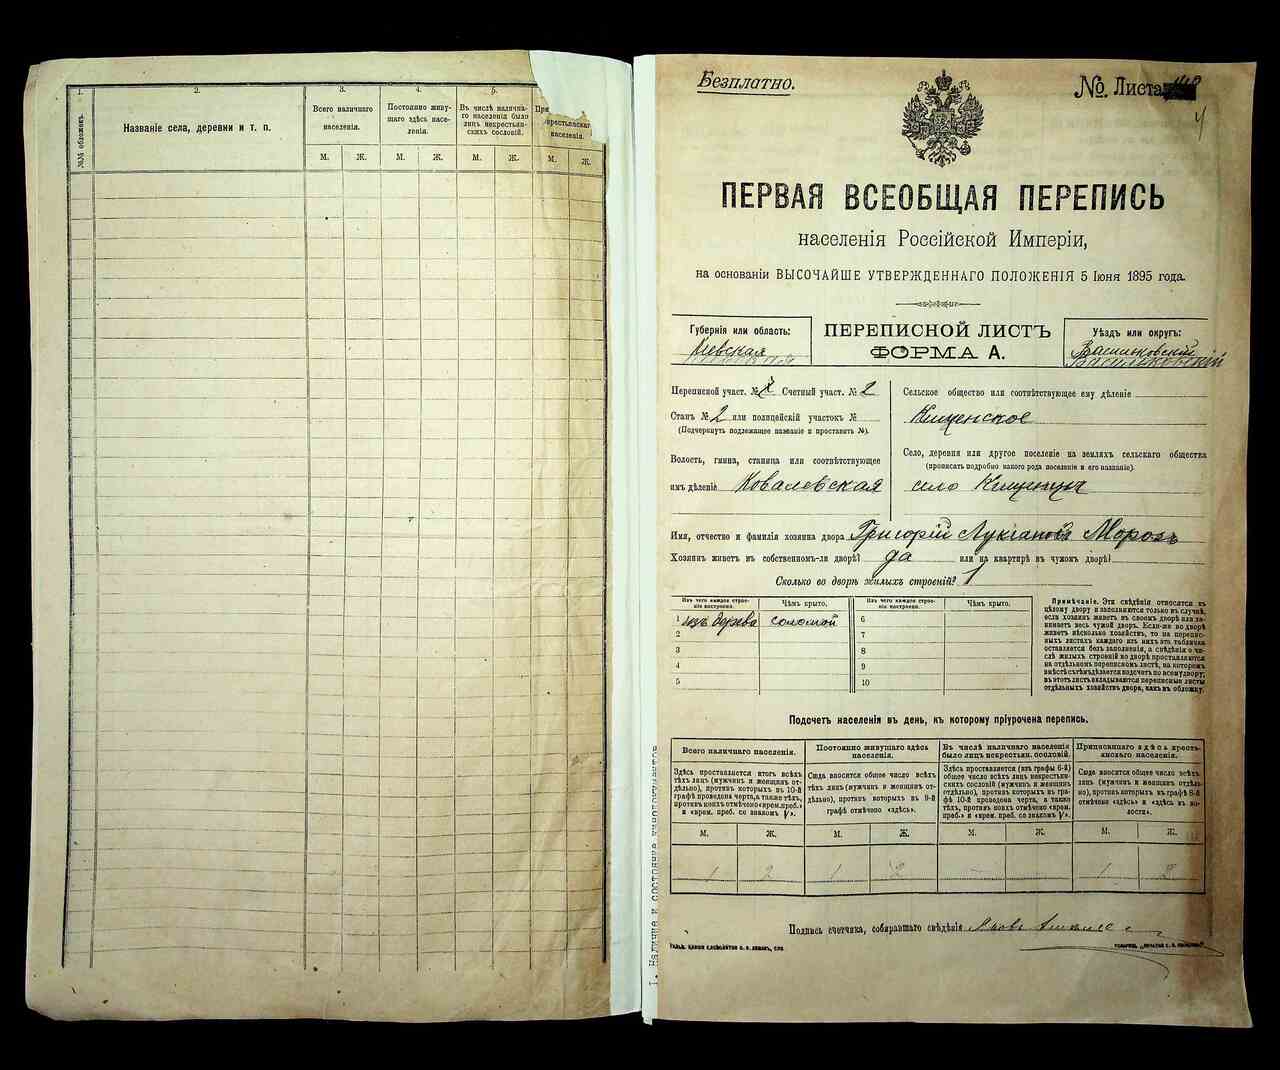 1.
2.
3.
4.
5.
№№ обложек.
Названіе села, деревни и т. п.
Всего наличнаго
населенія.
Постоянно живу-
щаго здѣсь насе-
ленія.
Въ числѣ налична-
го населенія было
лицъ некрестьян-
скихъ сословій.
крестьянскаго
населенія.
М. Ж. М. Ж. М. Ж. М. Ж.
Безплатно.
№ Листа
ПЕРВАЯ ВСЕОБЩАЯ ПЕРЕПИСЬ
населенія Россійской Имперіи,
на основаніи ВЫСОЧАЙШЕ УТВЕРЖДЕННАГО ПОЛОЖЕНІЯ 5 Іюня 1895 года.
Губернія или область:
Кіевская
ПЕРЕПИСНОЙ ЛИСТЪ
ФОРМА А.
Уѣздъ или округъ:
Васильковскій
Васильковскій
Переписной участ. № Счетный участ. № 2
Станъ № 2 или полицейскій участокъ №
(Подчеркнуть подлежащее названіе и проставить №).
Волость, гмина, станица или соотвѣтствующее
имъ дѣленіе Ковалевская
Сельское общество или соотвѣтствующее ему дѣленіе
Кищенское
Село, деревня или другое поселеніе на земляхъ сельскаго общества
(прописать подробно какого рода поселеніе и его названіе).
село Кищенцы
Имя, отчество и фамилія хозяина двора Григорій Лукіановъ Морозъ
Хозяинъ живетъ въ собственномъ-ли дворѣ? да или на квартирѣ въ чужомъ дворѣ?
Сколько во дворѣ жилыхъ строеній? 1
Изъ чего каждое строе-
ніе построено.
Чѣмъ крыто.
Изъ чего каждое строе-
ніе построено.
Чѣмъ крыто.
1 изъ дерева соломой 6
2 7
3 8
4 9
5 10
Примѣчаніе. Эти свѣдѣнія относятся къ
цѣлому двору и заполняются только въ случаѣ,
если хозяинъ живетъ въ своемъ дворѣ или за-
нимаетъ весь чужой дворъ. Если-же во дворѣ
живетъ нѣсколько хозяйствъ, то на перепис-
ныхъ листахъ каждаго изъ нихъ эта табличка
оставляется безъ заполненія, а свѣдѣнія о чи-
слѣ жилыхъ строеній во дворѣ проставляются
на отдѣльномъ переписномъ листѣ, на которомъ
вмѣстѣ съ тѣмъ дѣлается подсчетъ по всему двору;
въ этотъ листъ вкладываются переписные листы
отдѣльныхъ хозяйствъ двора, какъ въ обложку.
Подсчетъ населенія въ день, къ которому пріурочена перепись.
Всего наличнаго населенія.
Постоянно живущаго здѣсь
населенія.
Въ числѣ наличнаго населенія
было лицъ некрестьян. сословій.
Приписаннаго здѣсь кресть-
янскаго населенія.
Здѣсь проставляется итогъ всѣхъ
тѣхъ лицъ (мужчинъ и женщинъ от-
дѣльно), противъ которыхъ въ 10-й
графѣ проведена черта, а также тѣхъ,
противъ коихъ отмѣчено «врем. преб.»
и «врем. преб. со знакомъ V».
Сюда вносится общее число всѣхъ
тѣхъ лицъ (мужчинъ и женщинъ от-
дѣльно), противъ которыхъ въ 9-й
графѣ отмѣчено «здѣсь».
Здѣсь проставляется (изъ графы 6-й)
общее число всѣхъ лицъ некрестьян-
скихъ сословій (мужчинъ и женщинъ
отдѣльно), противъ которыхъ въ гра-
фѣ 10-й проведена черта, а также
тѣхъ, противъ коихъ отмѣчено «врем.
преб.» и «врем. преб. со знакомъ V».
Сюда вносится общее число всѣхъ
тѣхъ лицъ (мужчинъ и женщинъ отдѣль-
но), противъ которыхъ въ графѣ 8-й
отмѣчено «здѣсь» и «здѣсь въ во-
лости».
М. Ж. М. Ж. М. Ж. М. Ж.
1 2 1 2 — 1 2
Подпись счетчика, собиравшаго свѣдѣнія Яковъ